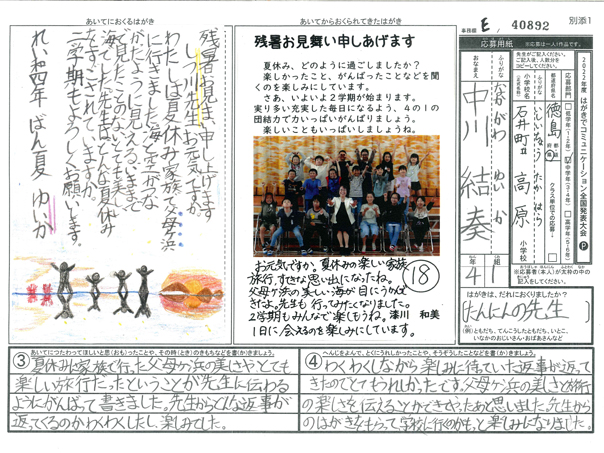 あいてにおくるはがき
残暑お見まい申し上げます
しつ川先生、お元気ですか。
わたしは夏休み、家族で父母ヶ浜
に行きました。海と空がかがみ
れい和四年 ばん夏 ゆいか
二学期もよろしくお願いします。
あいてからおくられてきたはがき
残暑お見舞い申しあげます
夏休み、どのように過ごしましたか？
楽しかったこと、がんばったことなどを聞
くのを楽しみにしています。
さあ、いよいよ２学期が始まります。
実り多い充実した毎日になるよう、４の１の
団結力で力いっぱいがんばりましょう。
楽しいこともいっぱいしましょうね。
お元気ですか。夏休みの楽しい家族
旅行、すてきな思い出になったね。
父母ヶ浜の美しい海が目にうかび
ますよ。先生も行ってみたくなりました。
2学期もみんなで楽しもうね。 漆川 和美
1日に会えるのを楽しみにしています。
18
事務局 E 40892 別添1
応募用紙
※応募は一人1作品です。
2022年度 はがきでコミュニケーション全国発表大会 P
応募部門
低学年(1・2年)
中学年(3・4年)
高学年(5・6年)
都道府県名
徳島
小学校名
石井町 高原 小学校
ふりがな
なかがわ ゆいか
おなまえ
中川 結奏
4年 1組
※応募者(本人)が太枠の中の
記入をしてください。
はがきは、だれにおくりましたか？
たんにんの先生
(例)ともだち、てんこうしたともだち、いとこ、
いなかのおじいさん・おばあさんなど
③ あいてにつたわってほしいと思(おも)ったことや、その時(とき)のきもちなどを書(か)きましょう。
夏休みに家族で行った父母ヶ浜の美しさやとても
楽しい旅行だったということが先生に伝わる
ようにがんばって書きました。先生からどんな返事が
返ってくるのかわくわくしたし、楽しみでした。
④ へんじをよんで、とくにうれしかったことや、そうぞうしたことなどを書(か)きましょう。
わくわくしながら楽しみに待っていた返事が返って
きたのでとてもうれしかったです。父母ヶ浜の美しさと旅行
の楽しさを伝えることができてよかったなあと思いました。先生から
のはがきをもらって学校に行くのがもっと楽しみになりました。